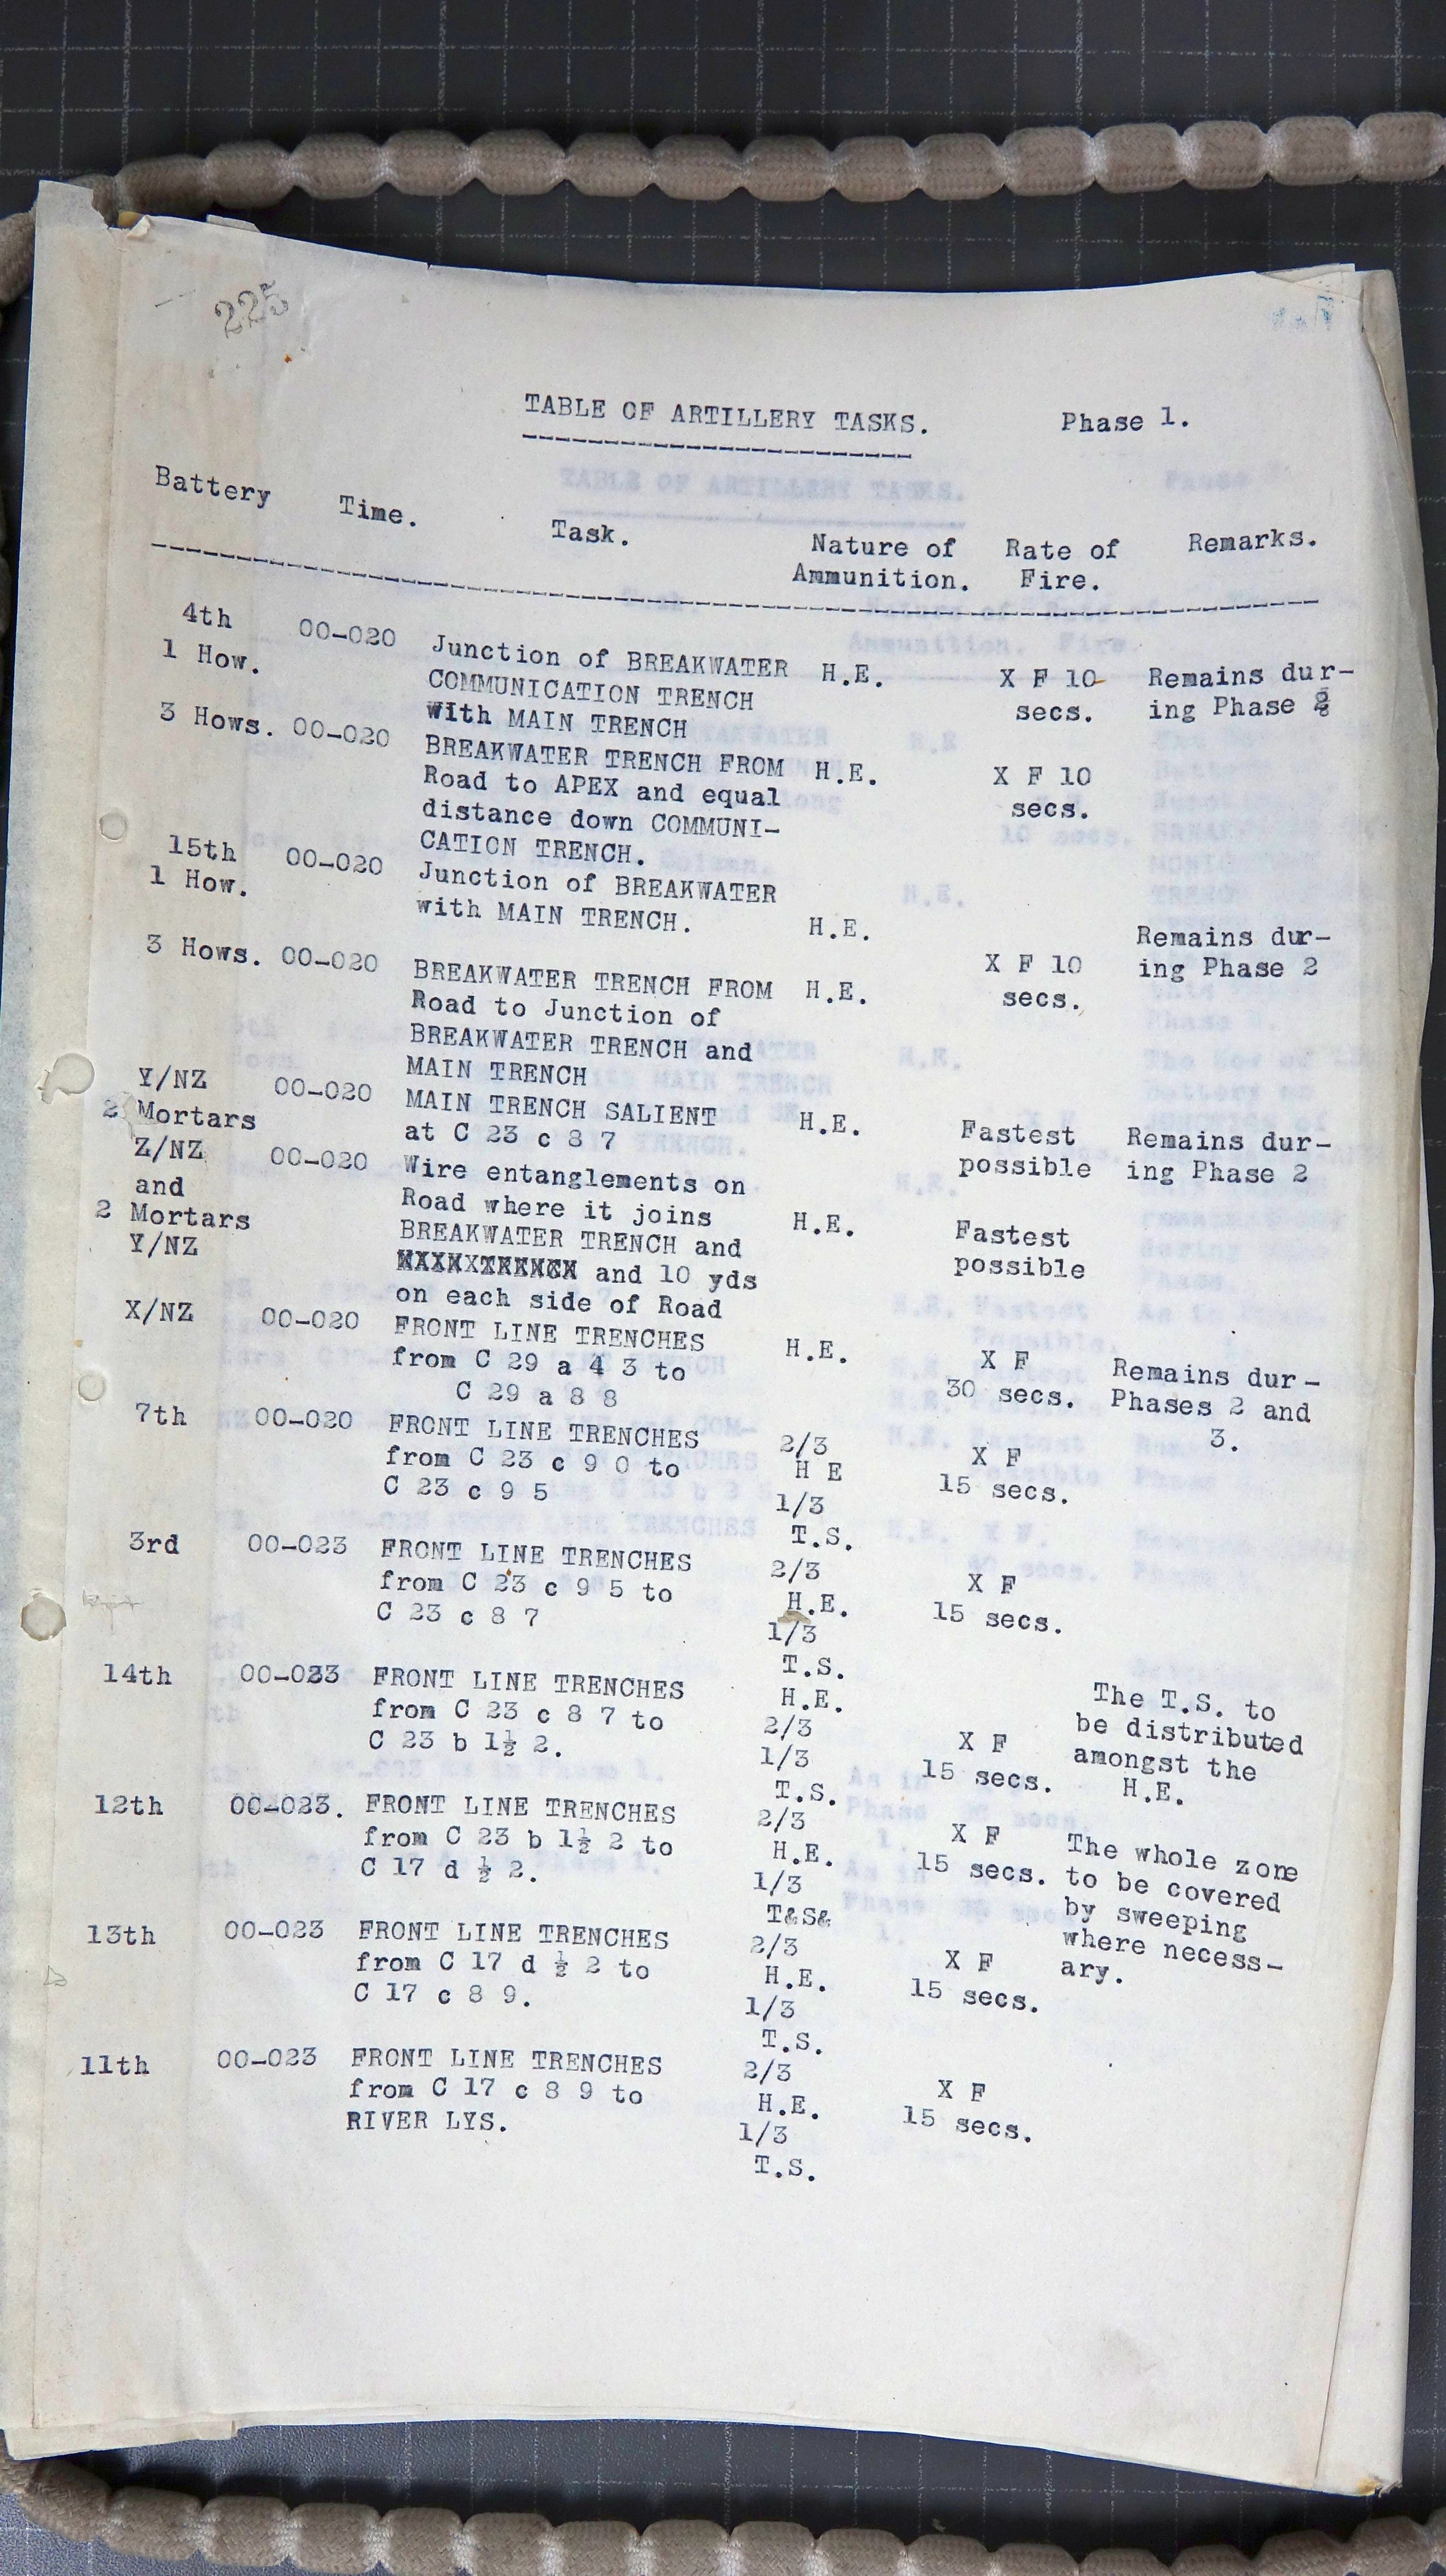 225
TABLE OF ARTILLERY TASKS. Phase 1.
Battery Time. Task. Nature of Ammunition. Rate of Fire. Remarks.
4th 00-020 Junction of BREAKWATER H.E. X F 10 Remains dur-
1 How. COMMUNICATION TRENCH secs. ing Phase 2
With MAIN TRENCH
3 Hows. 00-020 BREAKWATER TRENCH FROM H.E. X F 10
Road to APEX and equal secs.
distance down COMMUNI-
CATION TRENCH.
15th 00-020 Junction of BREAKWATER
1 How. with MAIN TRENCH. H.E. Remains dur-
ing Phase 2
3 Hows. 00-020 BREAKWATER TRENCH FROM H.E. X F 10
Road to Junction of secs.
BREAKWATER TRENCH and
MAIN TRENCH
Y/NZ 00-020 MAIN TRENCH SALIENT H.E. Fastest Remains dur-
2 Mortars at C 23 c 8 7 possible ing Phase 2
Z/NZ 00-020 Wire entanglements on
and Road where it joins H.E. Fastest
2 Mortars BREAKWATER TRENCH and possible
Y/NZ and 10 yds
on each side of Road
X/NZ 00-020 FRONT LINE TRENCHES H.E. X F Remains dur-
from C 29 a 4 3 to 30 secs. Phases 2 and
C 29 a 8 8 3.
7th 00-020 FRONT LINE TRENCHES 2/3 X F
from C 23 c 9 0 to H E 15 secs.
C 23 c 9 5 1/3
T.S.
3rd 00-023 FRONT LINE TRENCHES 2/3 X F
from C 23 c 9 5 to H.E. 15 secs.
C 23 c 8 7 1/3
T.S.
14th 00-023 FRONT LINE TRENCHES H.E. The T.S. to
from C 23 c 8 7 to 2/3 X F be distributed
C 23 b 1½ 2. 1/3 15 secs. amongst the
T.S. H.E.
12th 00-023. FRONT LINE TRENCHES 2/3 X F The whole zone
from C 23 b 1½ 2 to H.E. 15 secs. to be covered
C 17 d ½ 2. 1/3 by sweeping
T&S& where necess-
ary.
13th 00-023 FRONT LINE TRENCHES 2/3 X F
from C 17 d ½ 2 to H.E. 15 secs.
C 17 c 8 9. 1/3
T.S.
11th 00-023 FRONT LINE TRENCHES 2/3 X F
from C 17 c 8 9 to H.E. 15 secs.
RIVER LYS. 1/3
T.S.